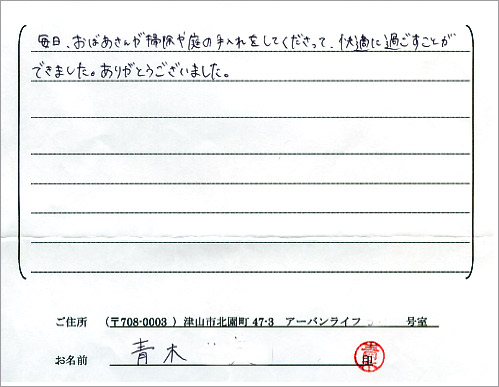 毎日、おばあさんが掃除や庭の手入れをしてくださって、快適に過ごすことが
できました。ありがとうございました。
ご住所 (〒708-0003 ) 津山市北園町 47-3 アーバンライフ 号室
お名前 青木 印